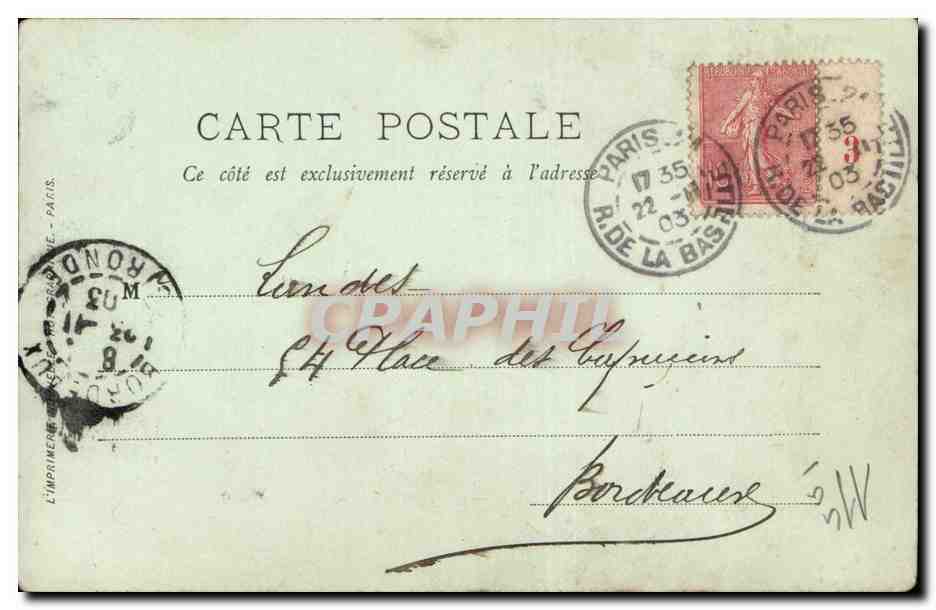 RÉPUBLIQUE FRANÇAISE
3
CARTE POSTALE
Ce côté est exclusivement réservé à l'adresse
PARIS
17 35
22 - 11
03
R. DE LA BASTILLE
PARIS
17 35
03
R. DE LA BASTILLE
M Landes
54 Place des Capucins
Bordeaux
CRAPHIL
BORDEAUX
GIRONDE
8
23 - 11
03
L'IMPRIMERIE
PARIS.